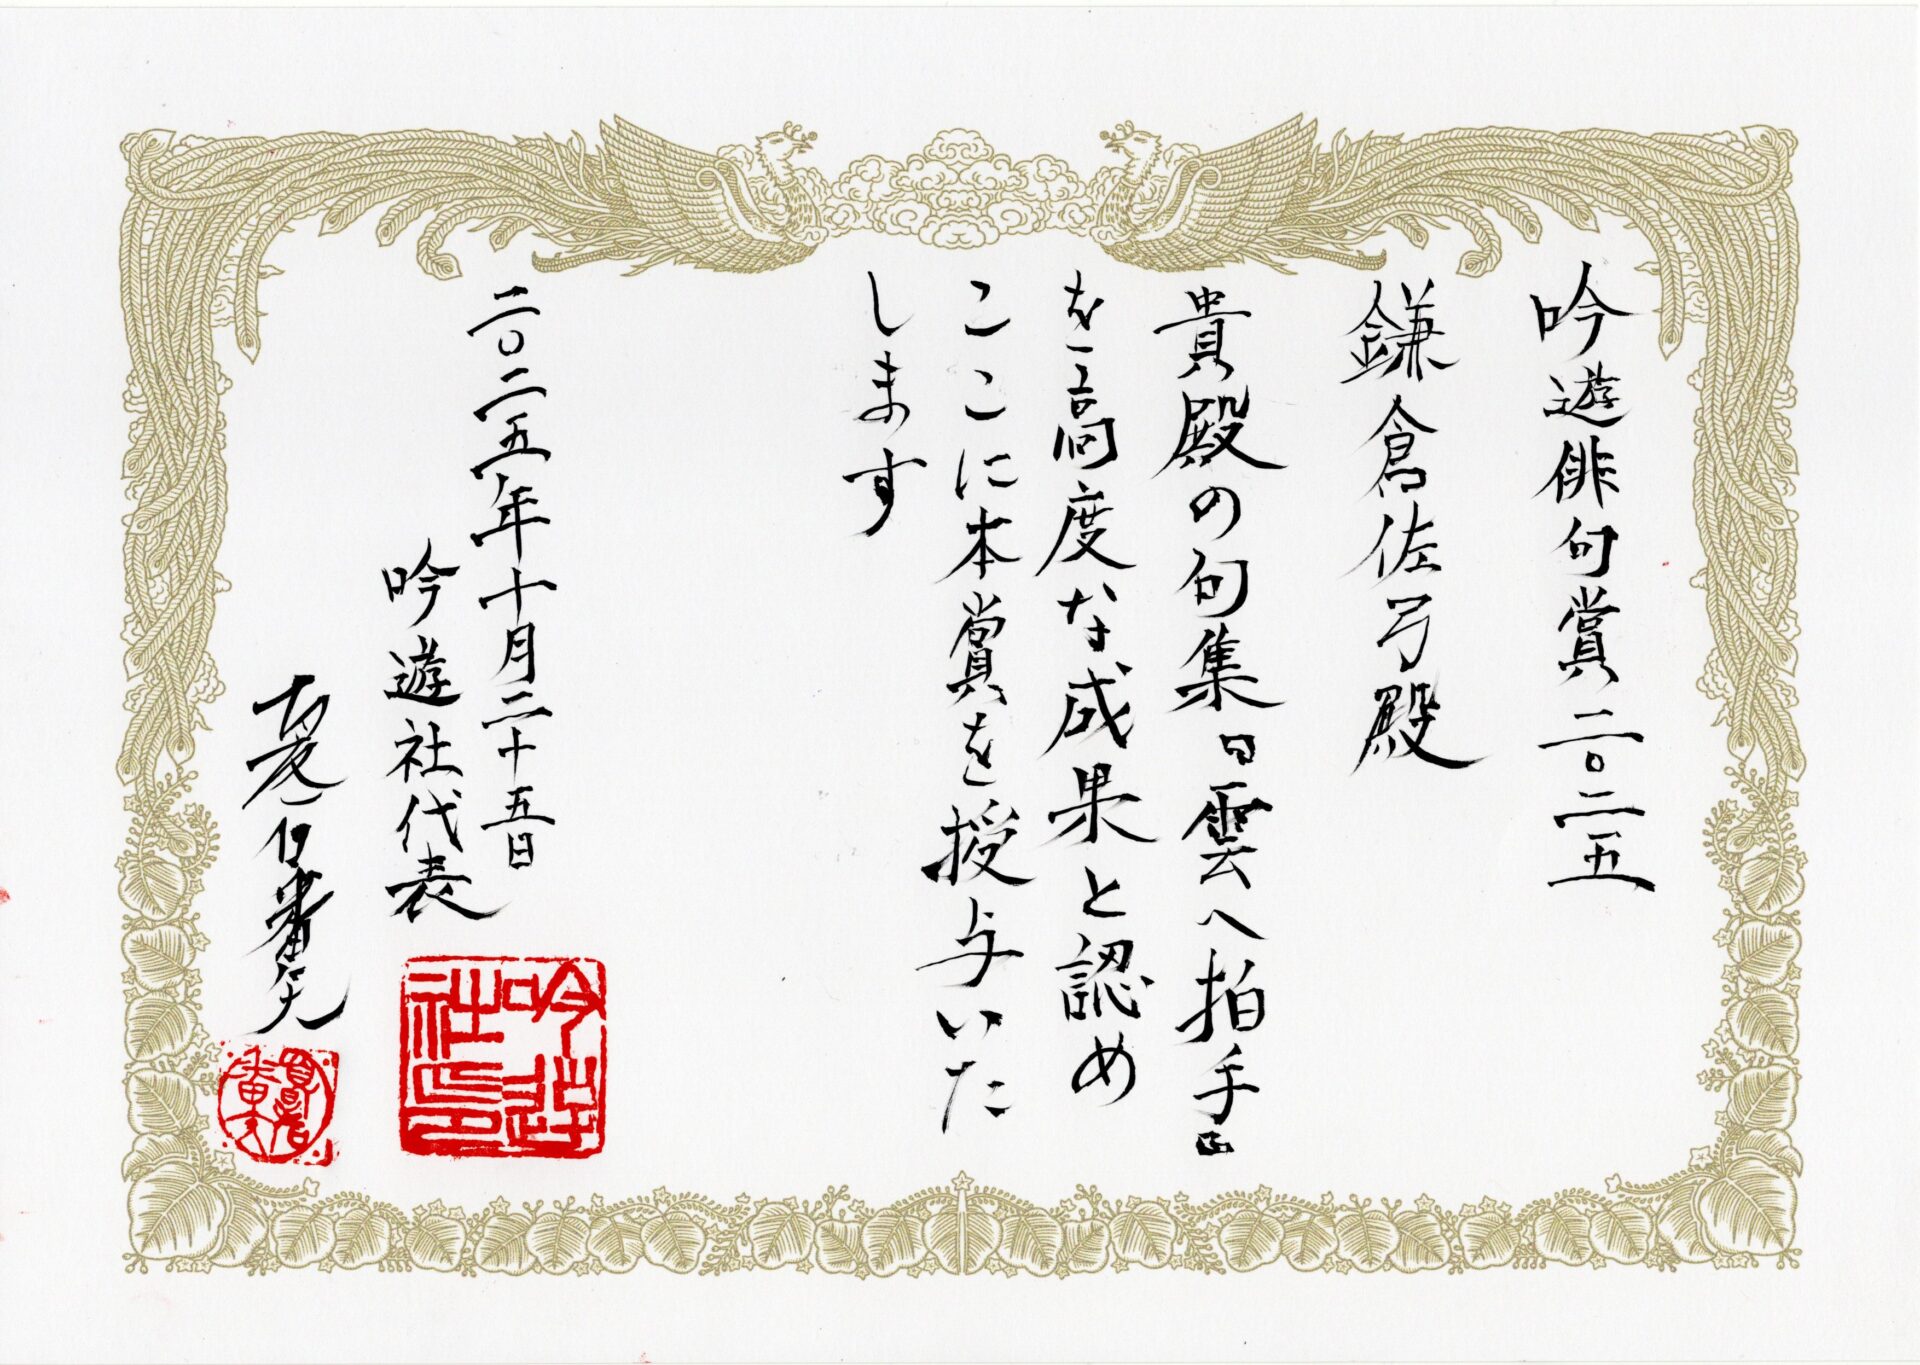 吟遊俳句賞二〇二五
鎌倉佐弓殿
貴殿の句集『雲へ拍手』
を高度な成果と認め
ここに本賞を授与いた
します
二〇二五年十月二十五日
吟遊社代表
夏石番矢
吟遊社印
夏石番矢